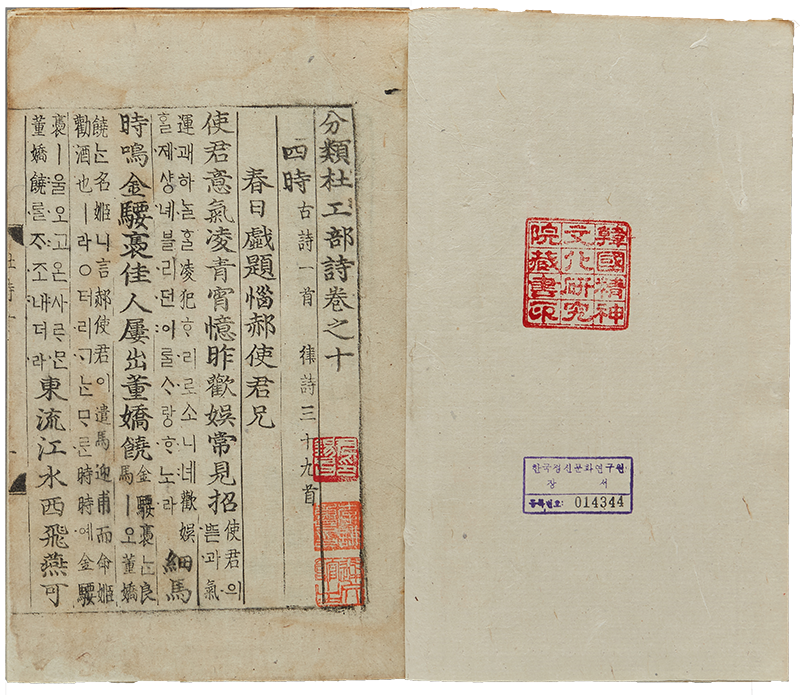 韓國精神
文化研究
院藏書印
한국정신문화연구원
장 서
등록번호: 014344
分類杜工部詩卷之十
四時 古詩一首 律詩三十九首
春日戲題惱郝使君兄
使君意氣凌青霄憶昨歡娛常見招 使君의
ᄠᅳᆮ과氣
運괘하ᄂᆞᆯᄒᆞᆯ凌犯ᄒᆞ리로소니녜歡娛
ᄒᆞᆯ제샹녜블리던이ᄅᆞᆯᄉᆞ랑ᄒᆞ노라 細馬
時鳴金騕褭佳人屢出董嬌饒 金騕褭ᄂᆞᆫ良
馬ㅣ오董嬌
饒ᄂᆞᆫ名姬니言郝使君이遣馬迎甫而命姬
勸酒也ㅣ라○터리ᄀᆞᄂᆞᆫᄆᆞᄅᆞᆫ時時예金騕
褭ㅣ울오고온사ᄅᆞᄆᆞᆫ
董嬌饒ᄅᆞᆯᄌᆞ조내더라 東流江水西飛燕可